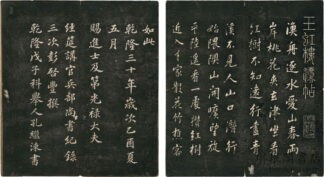 漁舟逐水愛山春兩
岸桃花夾去津坐看
紅樹不知遠行盡青
溪不見人山口潛行
始隈隩山開曠望旋
平陸遙看一處攢雲樹
近入千家散花竹樵客
如此
乾隆三十年歲次乙酉夏
五月
賜進士及第光祿大夫
經筵講官兵部尚書紀錄
三次彭啓豐撰
乾隆戊子科舉人孔繼涑書